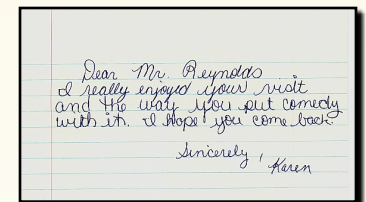 Dear Mr. Reynolds
I really enjoyed your visit
and the way you put comedy
with it. I hope you come back.
Sincerely,
Karen